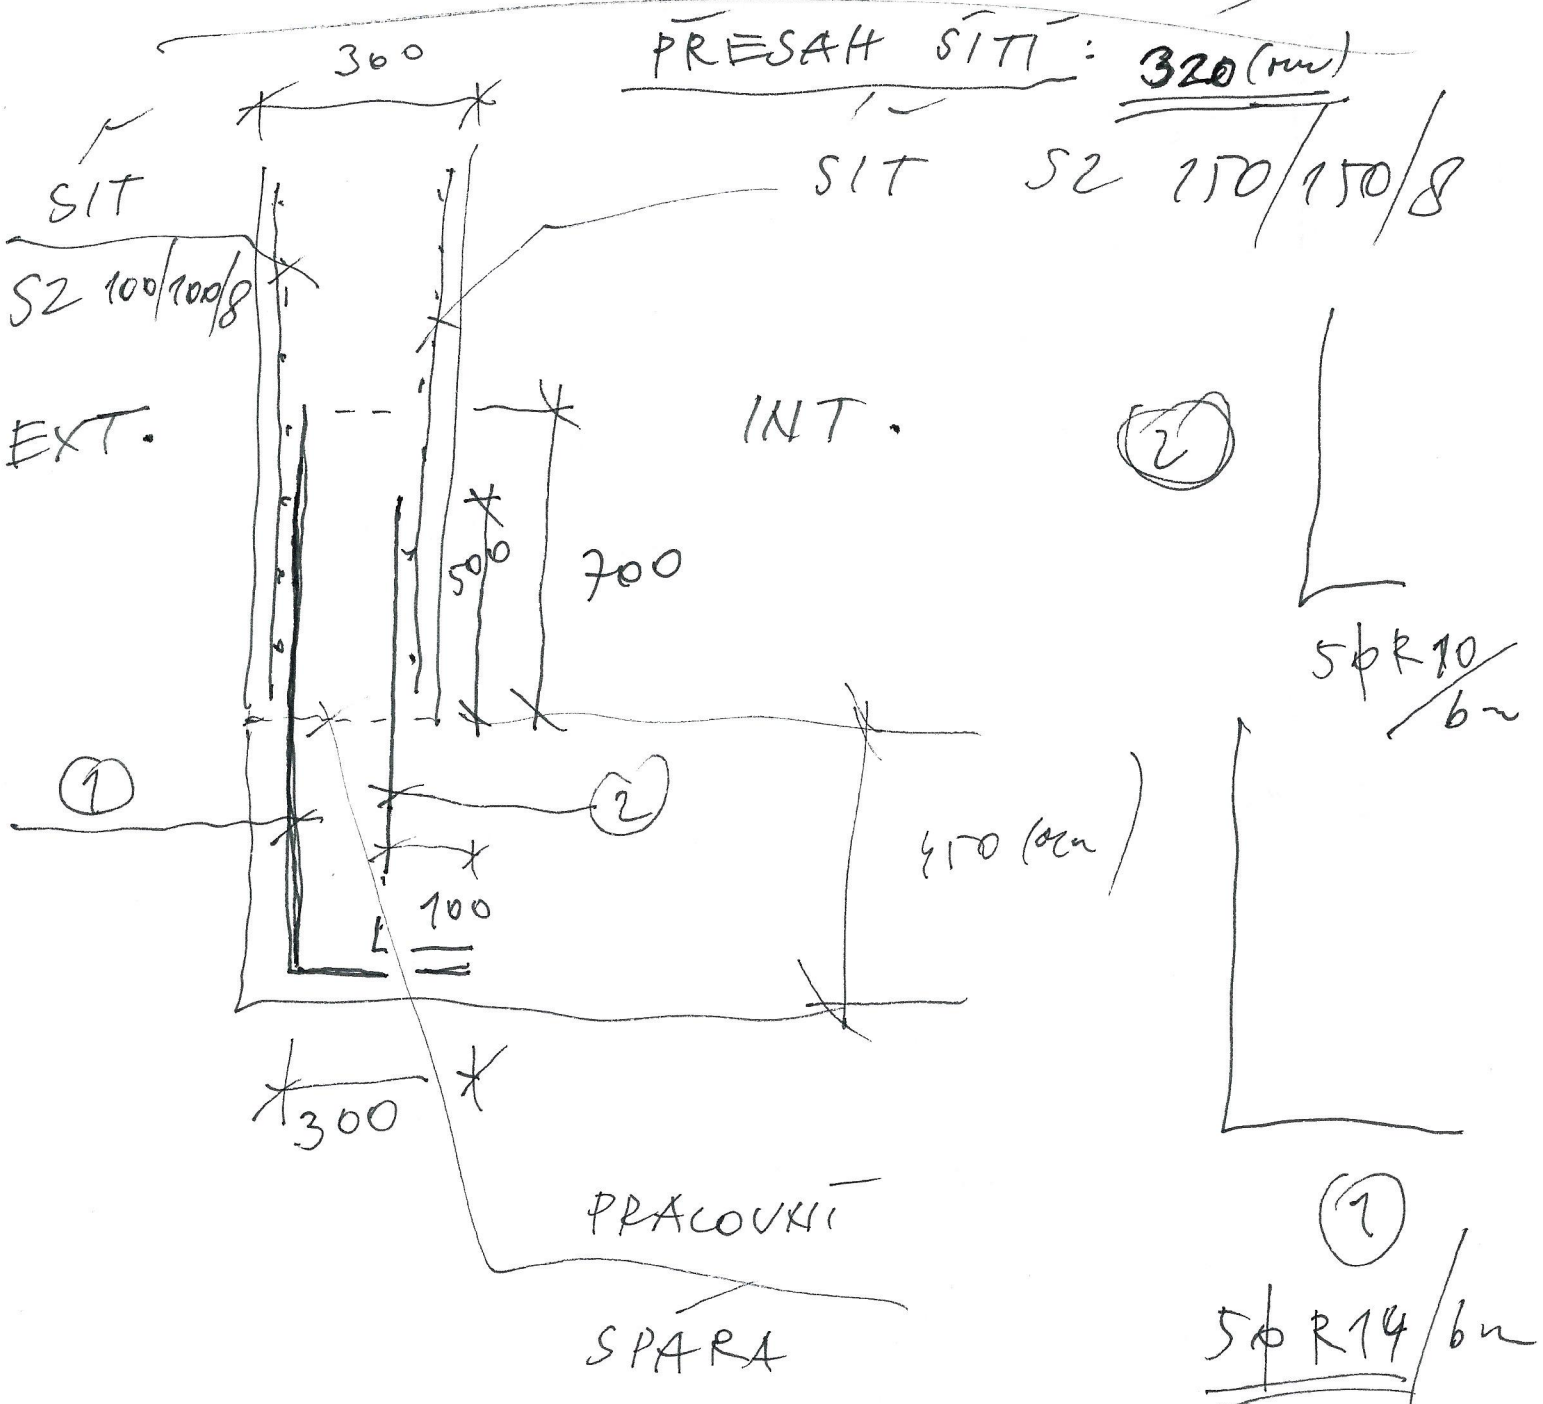 PŘESAH SÍTÍ: 320 (mm)
360
SÍŤ
S2 100/100/8
SÍŤ S2 150/150/8
EXT.
INT.
2
500
700
5ϕR10/bm
1
2
100
450 (mm)
300
PRACOVNÍ
SPÁRA
1
5ϕR14/bm